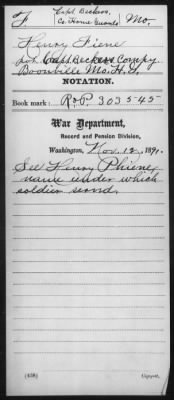 F Capt. Beckers, Co. Home Guards Mo.
Henry Fiene
Pvt. Capt. Beckers Compy
Boonville Mo. H. G.
NOTATION.
Book mark: R & P. 303545
War Department,
Record and Pension Division,
Washington, Nov. 12, 1891.
See Henry Phiene,
name under which
soldier served.
(438)
Copyist.